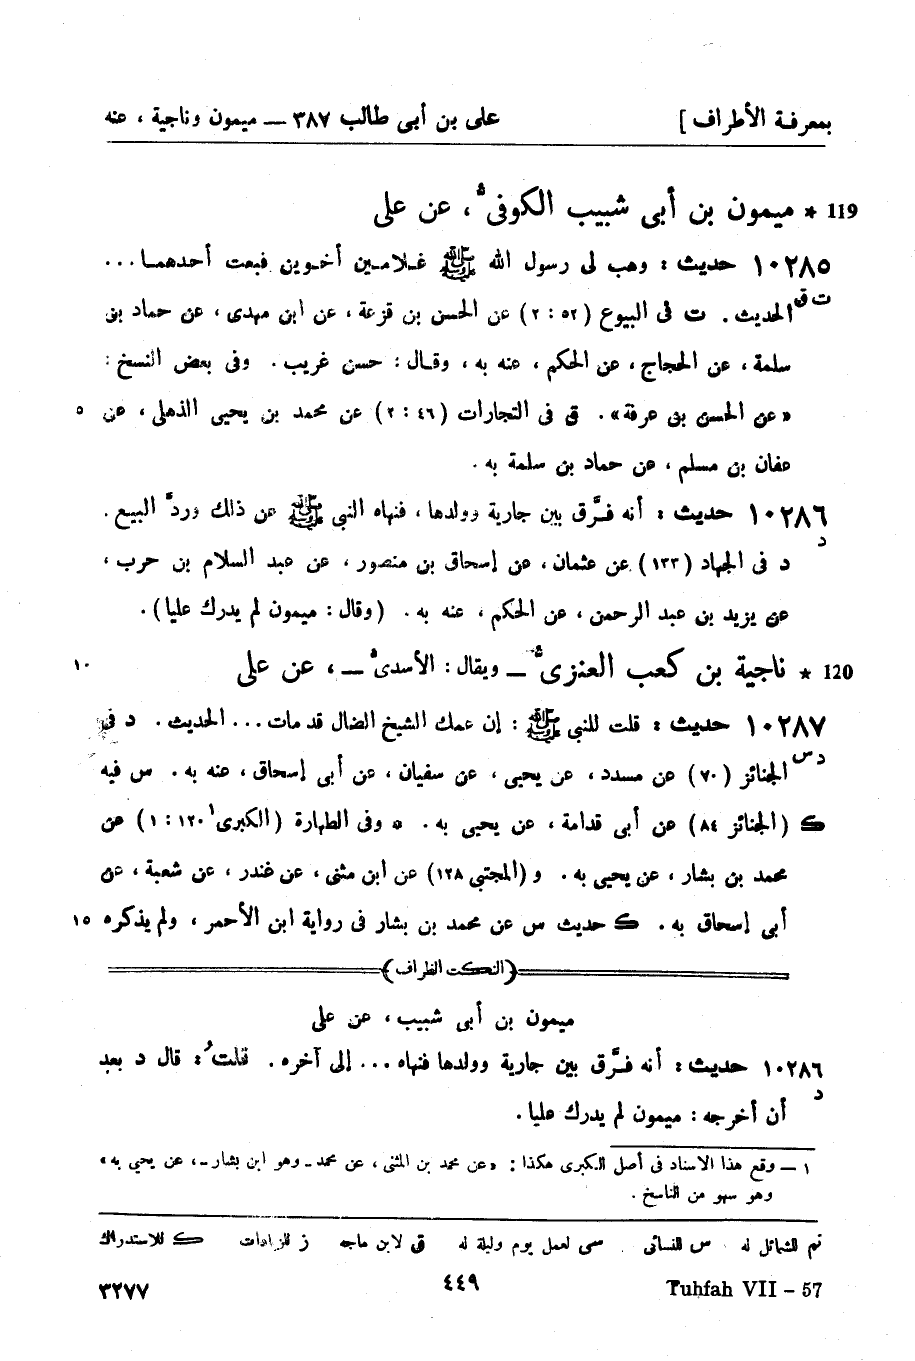 بمعرفة الأطراف ] على بن أبى طالب ٣٨٧ — ميمون وناجية ، عنه
119 * ميمون بن أبى شبيب الكوفى ، عن على
١٠٢٨٥ حديث : وهب لى رسول الله ﷺ غلامين أخوين فبعت أحدهما ...
ت ق الحديث . ت فى البيوع (٥٢ : ٢) عن الحسن بن قزعة ، عن ابن مهدى ، عن حماد بن
سلمة ، عن الحجاج ، عن الحكم ، عنه به ، وقال : حسن غريب . وفى بعض النسخ :
«عن الحسن بن عرفة» . ق فى التجارات (٤٦ : ٢) عن محمد بن يحيى الذهلى ، عن ٥
عفان بن مسلم ، عن حماد بن سلمة به .
١٠٢٨٦ حديث : أنه فرَّق بين جارية وولدها ، فنهاه النبى ﷺ عن ذلك وردَّ البيع .
د د فى الجهاد (١٣٣) عن عثمان ، عن إسحاق بن منصور ، عن عبد السلام بن حرب ،
عن يزيد بن عبد الرحمن ، عن الحكم ، عنه به . (وقال : ميمون لم يدرك عليا) .
120 * ناجية بن كعب العنزى — ويقال : الأسدى — ، عن على ١٠
١٠٢٨٧ حديث : قلت للنبى ﷺ : إن عمك الشيخ الضال قد مات ... الحديث . د فى
د س الجنائز (٧٠) عن مسدد ، عن يحيى ، عن سفيان ، عن أبى إسحاق ، عنه به . س فيه
ك (الجنائز ٨٤) عن أبى قدامة ، عن يحيى به . ه وفى الطهارة (الكبرى١ ١٢٠ : ١) عن
محمد بن بشار ، عن يحيى به . و (المجتبى ١٢٨) عن ابن مثنى ، عن غندر ، عن شعبة ، عن
أبى إسحاق به . ك حديث س عن محمد بن بشار فى رواية ابن الأحمر ، ولم يذكره ١٥
(النكت الظراف)
ميمون بن أبى شبيب ، عن على
١٠٢٨٦ حديث : أنه فرَّق بين جارية وولدها فنهاه ... إلى آخره . قلتُ : قال د بعد
د أن أخرجه : ميمون لم يدرك عليا .
١ — وقع هذا الاسناد فى أصل الكبرى هكذا : «عن محمد بن المثنى ، عن محمد ـ وهو ابن بشار ـ ، عن يحيى به»
وهو سهو من الناسخ .
تم للشمائل له س للنسائى سى لعمل يوم وليلة له ق لابن ماجه ز للزيادات ك للاستدراك
Tuḥfah VII - 57 ٤٤٩ ٣٢٧٧